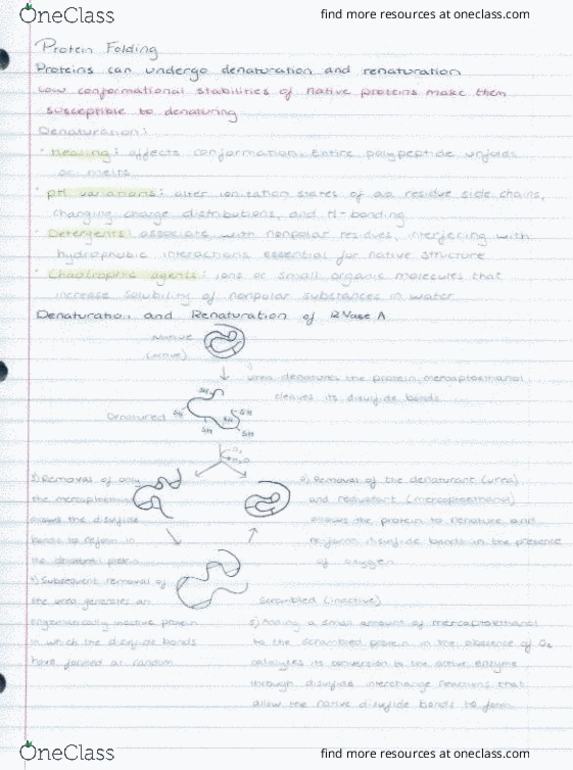 OneClass
find more resources at oneclass.com
Protein Folding
Proteins can undergo denaturation and renaturation
Low conformational stabilities of native proteins make them
susceptible to denaturing
Denaturation:
· Heating: affects conformation. Entire polypeptide unfolds
or melts
· pH variations: alter ionization states of aa residue side chains,
changing charge distributions, and H-bonding
· Detergents: associate with nonpolar residues, interfering with
hydrophobic interactions essential for native structure
· Chaotrophic agents: ions or small organic molecules that
increase solubility of nonpolar substances in water
Denaturation and Renaturation of RNase A
Native
(active)
urea denatures the protein, mercaptoethanol
cleaves its disulfide bonds
Denatured
SH
SH
SH
SH
SH
3) Removal of only
the mercaptoethanol
allows the disulfide
bonds to reform in
the denatured protein
Removal of the denaturant (urea)
and reductant (mercaptoethanol)
allows the protein to renature and
reform disulfide bonds in the presence
of oxygen
4) Subsequent removal of
the urea generates an
enzymatically inactive protein
in which the disulfide bonds
have formed at random
Scrambled (inactive)
5) Adding a small amount of mercaptoethanol
to the scrambled protein in the absence of O₂
catalyzes its conversion to the active enzyme
through disulfide interchange reactions that
allow the native disulfide bonds to form
OneClass
find more resources at oneclass.com